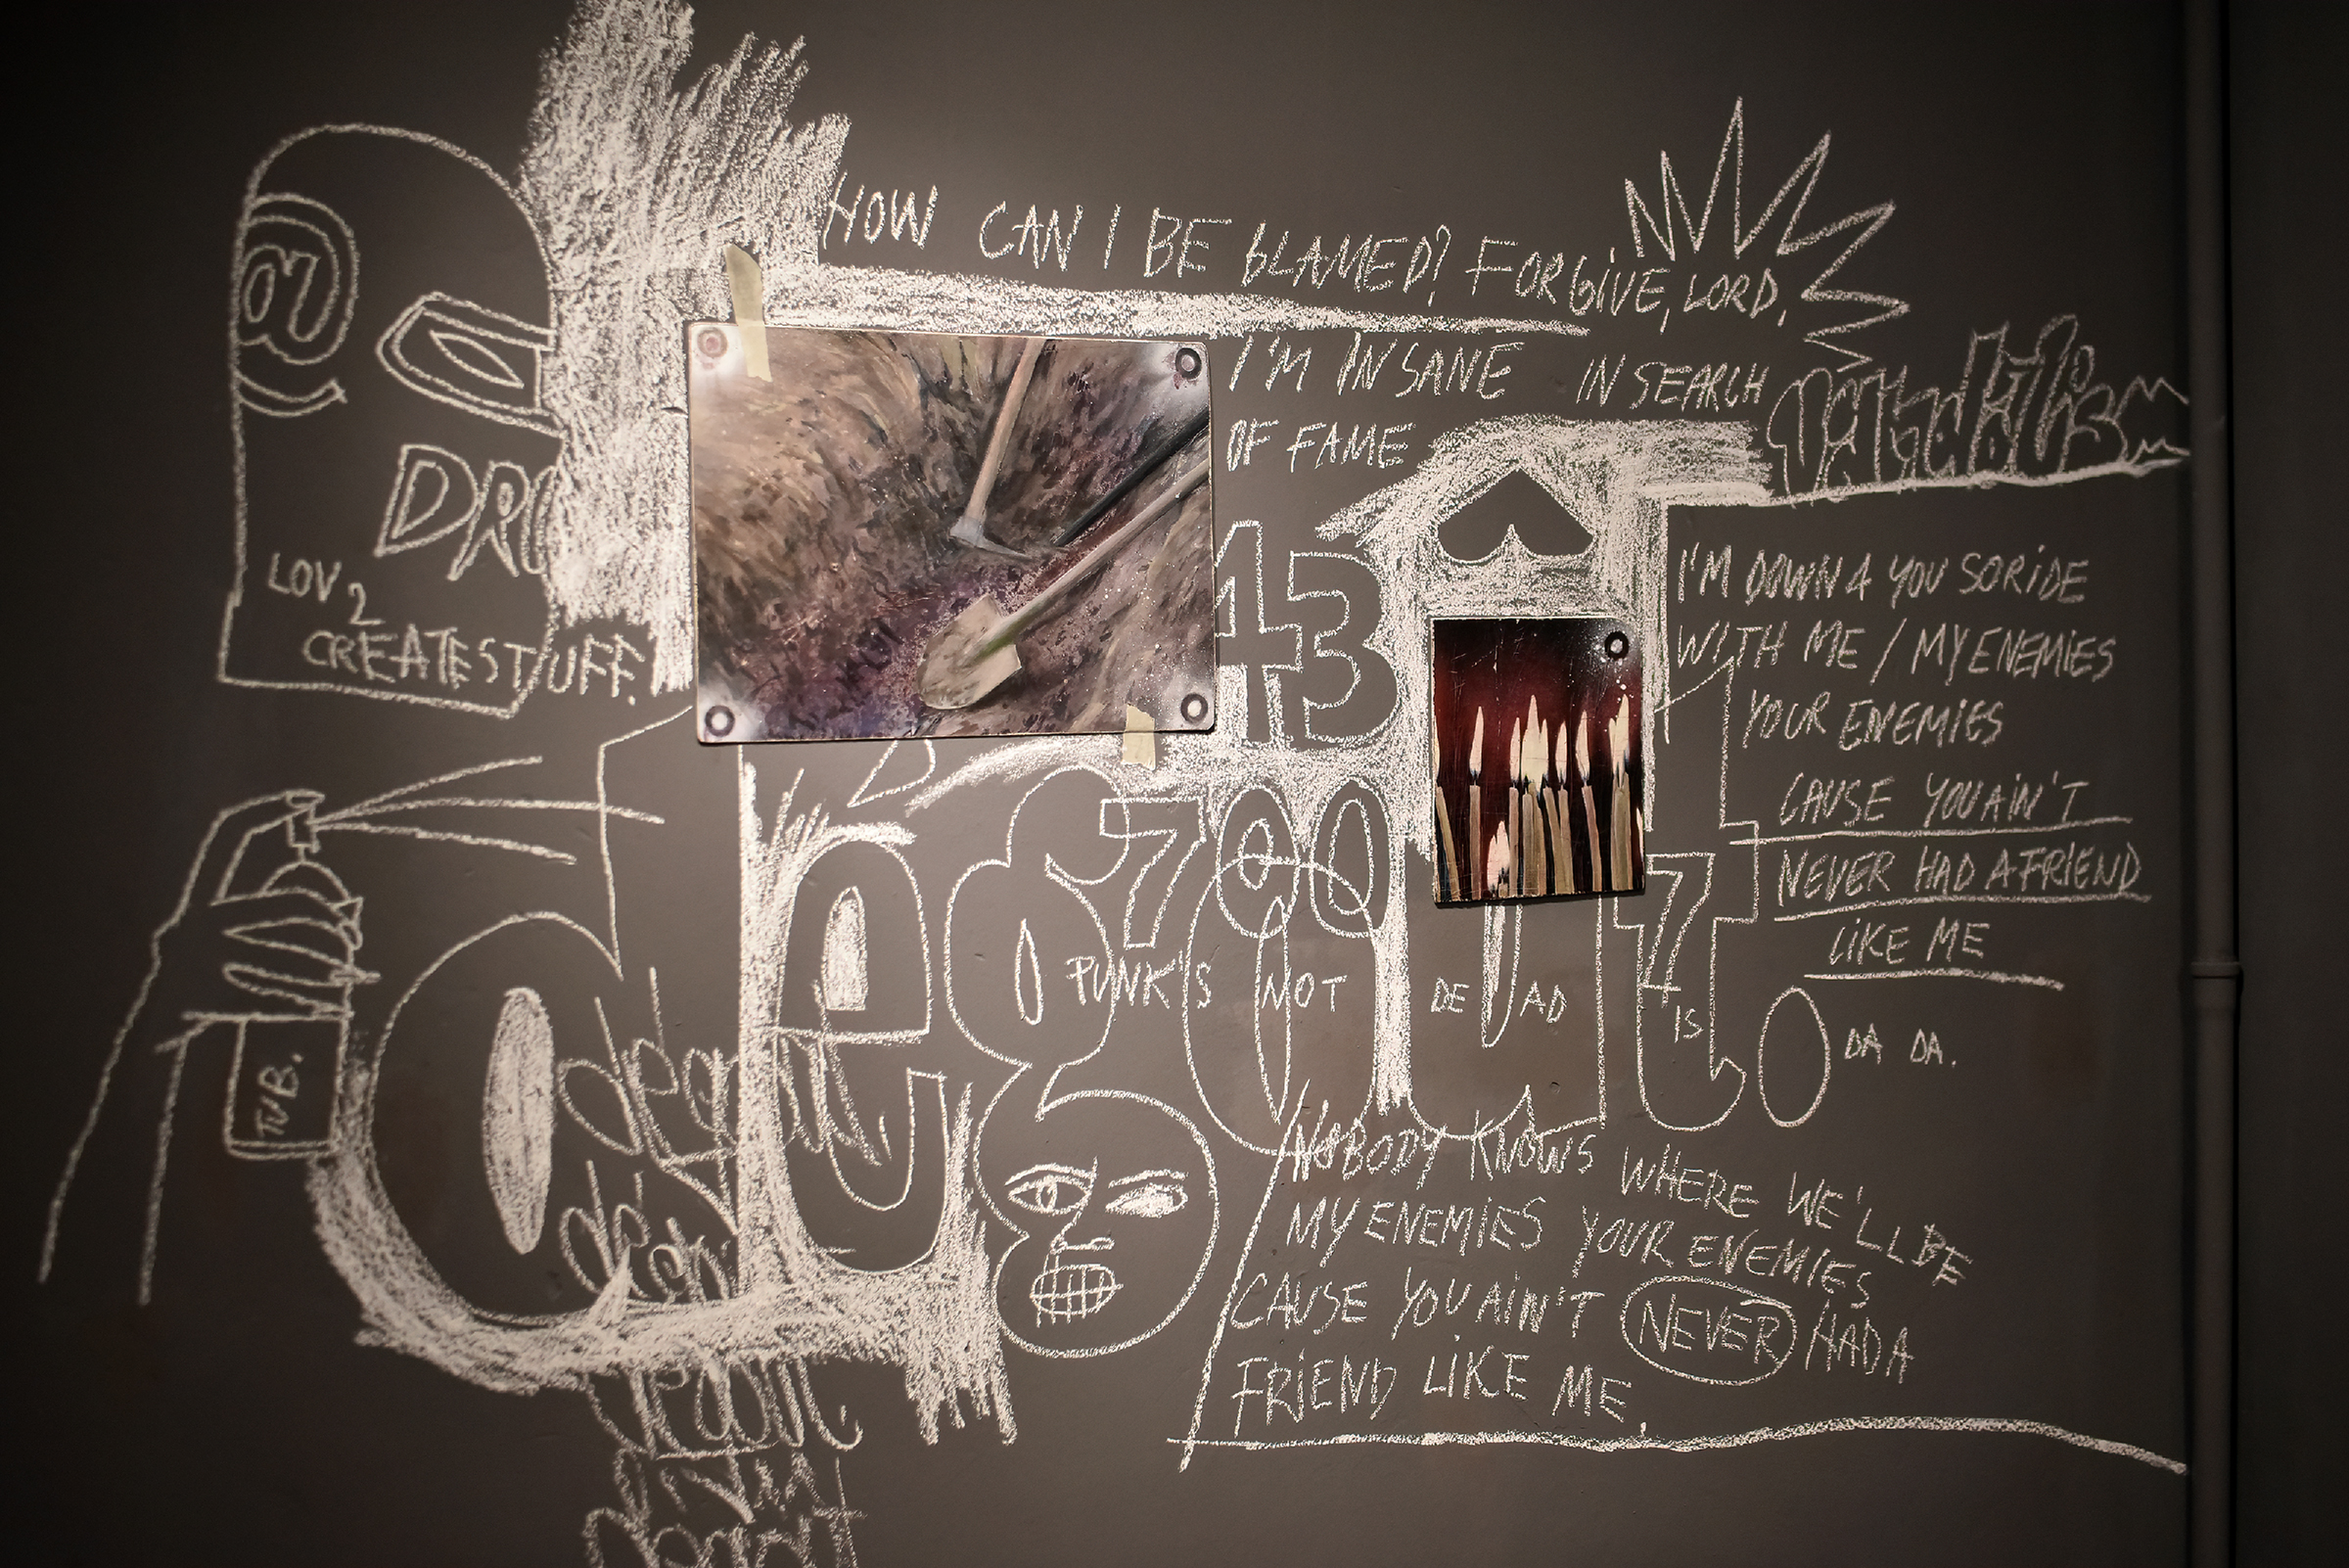 HOW CAN I BE BLAMED? FORGIVE, LORD,
I'M INSANE IN SEARCH
OF FAME
@
LOV 2
CREATE STUFF.
43
I'M DOWN 4 YOU SO RIDE
WITH ME / MY ENEMIES
YOUR ENEMIES
CAUSE YOU AIN'T
NEVER HAD A FRIEND
LIKE ME
700
degout
PUNK'S NOT DEAD
IS
DA DA.
TVB.
NOBODY KNOWS WHERE WE'LL BE
MY ENEMIES YOUR ENEMIES
CAUSE YOU AIN'T NEVER HAD A
FRIEND LIKE ME.